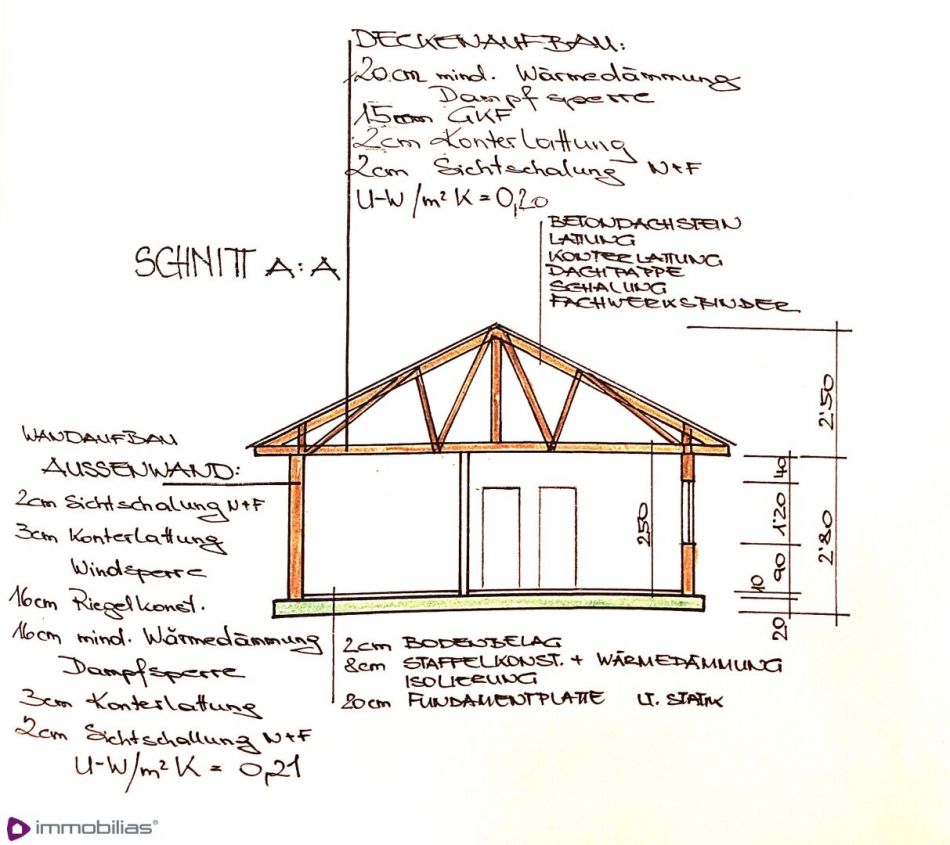 DECKENAUFBAU:
20cm mind. Wärmedämmung
Dampfsperre
15mm GKF
2cm Konterlattung
2cm Sichtschalung N+F
U-W/m²K = 0,20
BETONDACHSTEIN
LATTUNG
KONTERLATTUNG
DACHPAPPE
SCHALUNG
FACHWERKSBINDER
SCHNITT A:A
2'50
WANDAUFBAU
AUSSENWAND:
2cm Sichtschalung N+F
3cm Konterlattung
Windsperre
16cm Riegelkonst.
16cm mind. Wärmedämmung
Dampfsperre
3cm Konterlattung
2cm Sichtschallung N+F
U-W/m²K = 0,21
250
40
1'20
90
10
20
2'80
2cm BODENBELAG
8cm STAFFELKONST. + WÄRMEDÄMMUNG
ISOLIERUNG
20cm FUNDAMENTPLATTE LT. STATIK
immobilias®